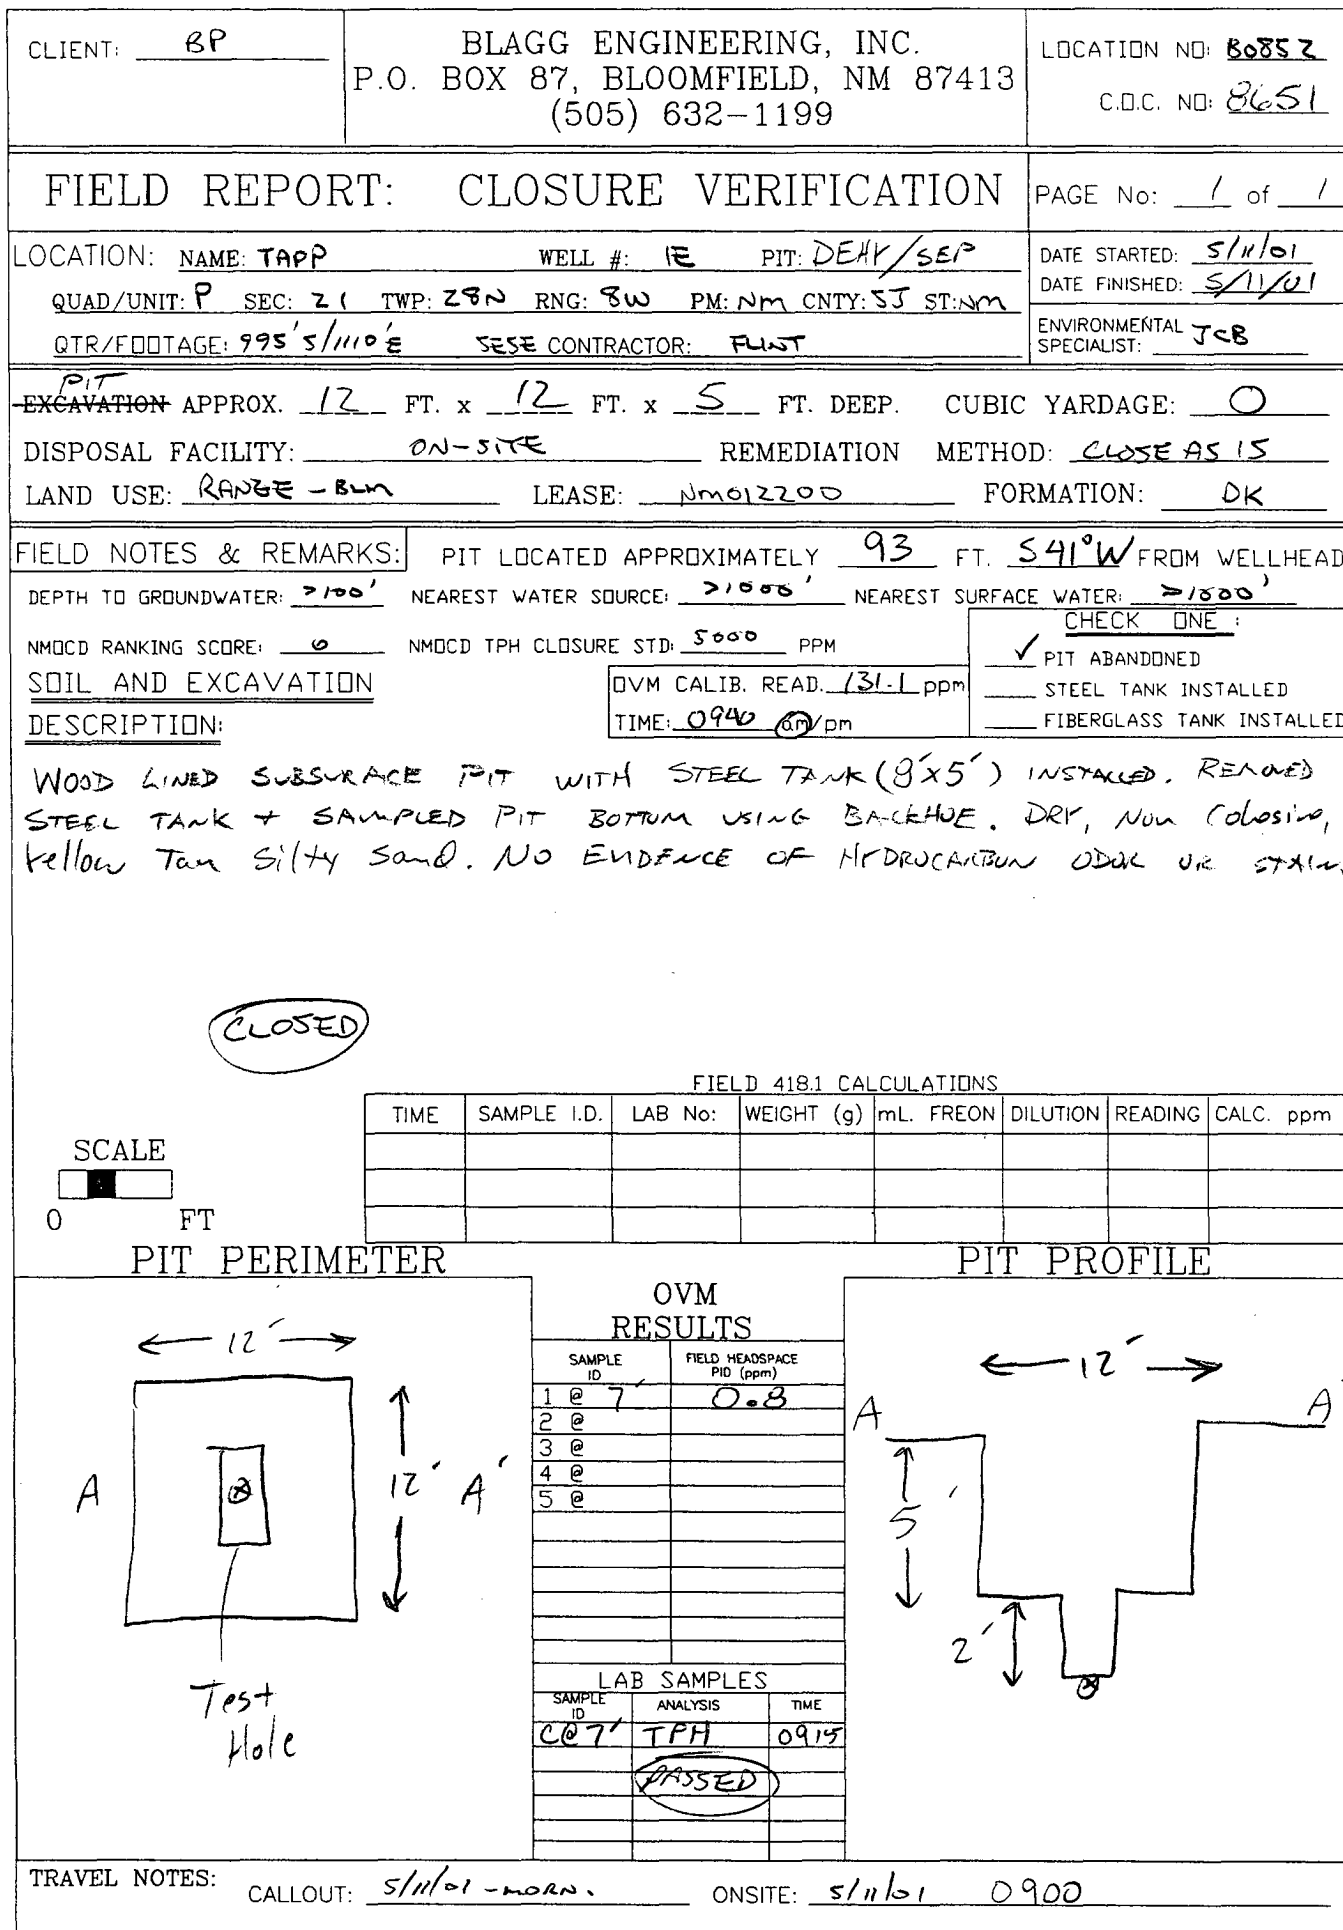 CLIENT: BP
BLAGG ENGINEERING, INC.
P.O. BOX 87, BLOOMFIELD, NM 87413
(505) 632-1199
LOCATION NO: B0852
C.O.C. NO: 8651
FIELD REPORT: CLOSURE VERIFICATION
PAGE No: 1 of 1
LOCATION: NAME: TAPP WELL #: 1E PIT: DEHY/SEP
QUAD/UNIT: P SEC: 21 TWP: 28N RNG: 8W PM: NM CNTY: SJ ST: NM
QTR/FOOTAGE: 995'S/1110'E SESE CONTRACTOR: FLINT
DATE STARTED: 5/11/01
DATE FINISHED: 5/11/01
ENVIRONMENTAL
SPECIALIST: JCB
PIT
EXCAVATION APPROX. 12 FT. x 12 FT. x 5 FT. DEEP. CUBIC YARDAGE: 0
DISPOSAL FACILITY: ON-SITE REMEDIATION METHOD: CLOSE AS IS
LAND USE: RANGE - BLM LEASE: NM012200 FORMATION: DK
FIELD NOTES & REMARKS: PIT LOCATED APPROXIMATELY 93 FT. S41°W FROM WELLHEAD
DEPTH TO GROUNDWATER: >100' NEAREST WATER SOURCE: >1000' NEAREST SURFACE WATER: >1000'
NMOCD RANKING SCORE: 0 NMOCD TPH CLOSURE STD: 5000 PPM
CHECK ONE :
✓ PIT ABANDONED
STEEL TANK INSTALLED
FIBERGLASS TANK INSTALLED
SOIL AND EXCAVATION
DESCRIPTION:
OVM CALIB. READ. 131.1 ppm
TIME: 0940 am/pm
WOOD LINED SUBSURACE PIT WITH STEEL TANK (8'x5') INSTALLED. REMOVED
STEEL TANK + SAMPLED PIT BOTTOM USING BACKHOE. DRY, Non Cohosive,
Yellow Tan Silty Sand. NO EVIDENCE OF HYDROCARBON ODOR OR STAIN.
CLOSED
FIELD 418.1 CALCULATIONS
TIME SAMPLE I.D. LAB No: WEIGHT (g) mL. FREON DILUTION READING CALC. ppm
SCALE
0 FT
PIT PERIMETER
12'
A 12' A'
Test
Hole
OVM
RESULTS
SAMPLE ID FIELD HEADSPACE PID (ppm)
1 @ 7' 0.8
2 @
3 @
4 @
5 @
LAB SAMPLES
SAMPLE ID ANALYSIS TIME
C@7' TPH 0915
PASSED
PIT PROFILE
12'
A A'
5'
2'
TRAVEL NOTES: CALLOUT: 5/11/01 - MORN. ONSITE: 5/11/01 0900